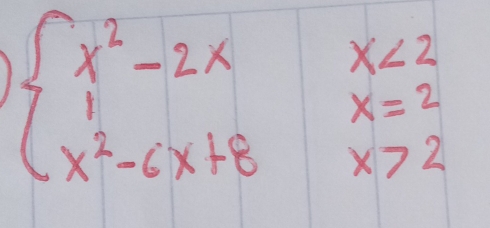 x² - 2x    x < 2
1    x = 2
x² - 6x + 8    x > 2